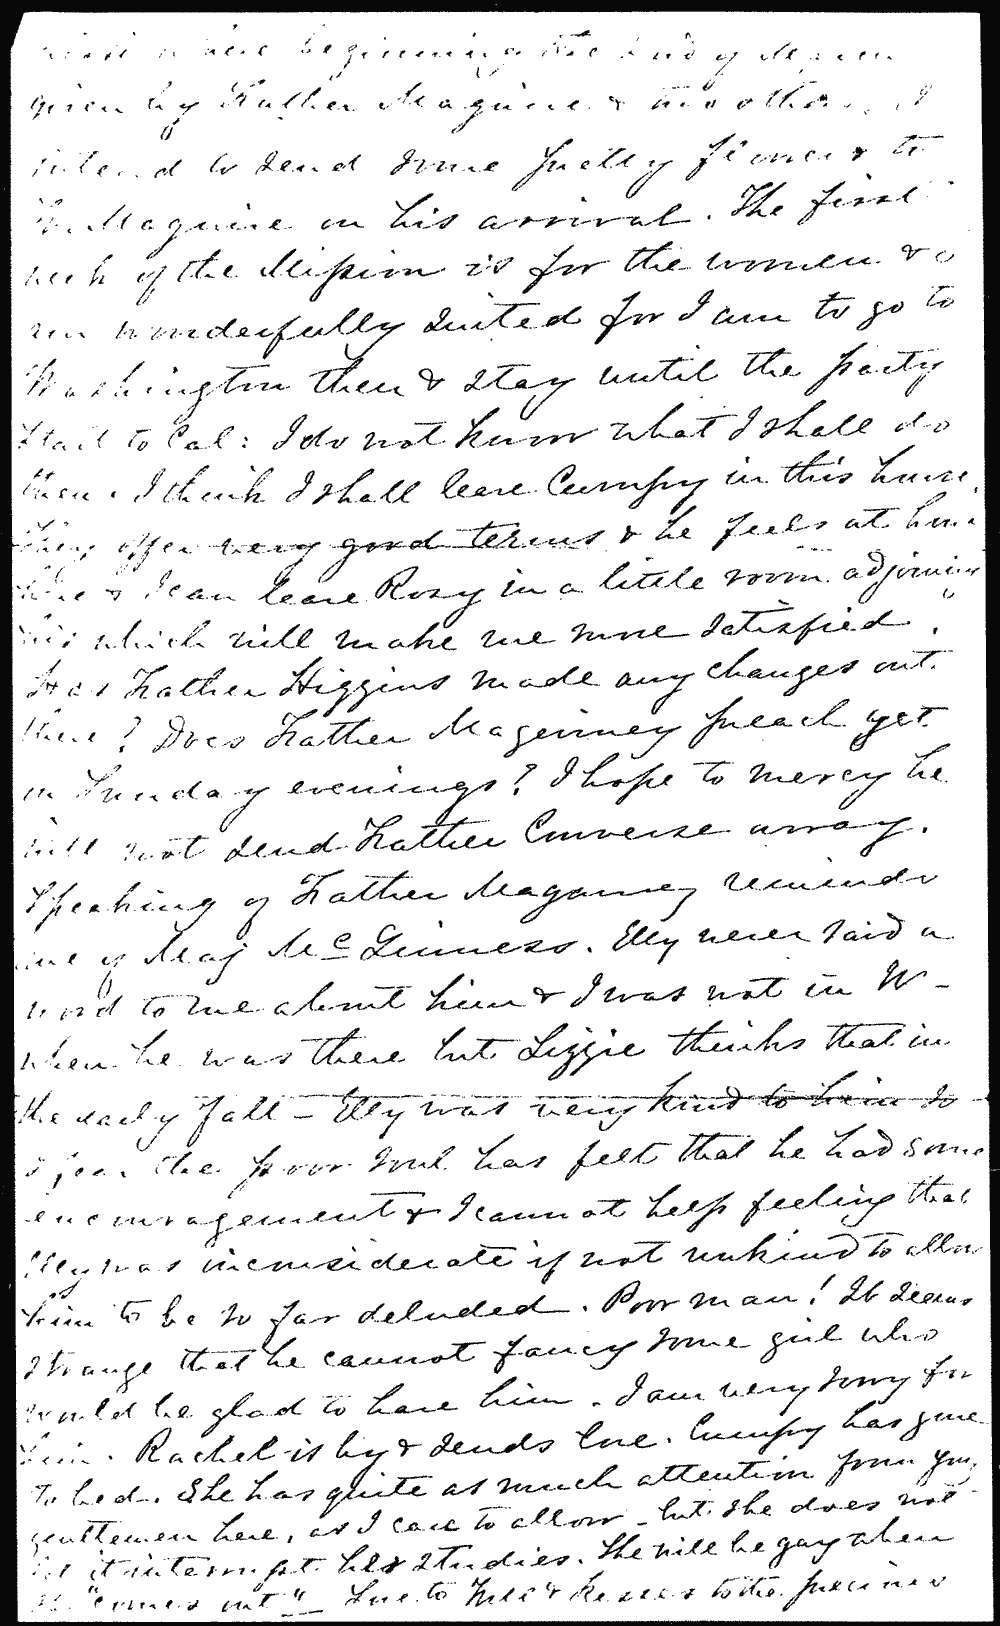 here beginning the end of March
given by Father Maguire & two others. I
intend to send some pretty flowers to
Maguire on his arrival. The first
week of the Mission is for the women &
am wonderfully suited for I am to go to
Washington then & stay until the party
start to Cal: I do not know what I shall do
then. I think I shall leave Cumpy in this house,
They offer very good terms & he feels at home
here & I can leave Rosy in a little room adjoining
his which will make me more satisfied.
Has Father Higgins made any changes out
there? Does Father Maginney preach yet
on Sunday evenings? I hope to mercy he
will not send Father Converse away.
Speaking of Father Maganney reminds
me of Maj McGinness. Elly never said a
word to me about him & I was not in W-
when he was there but Lizzie thinks that in
the early fall - Elly was very kind to him so
I fear the poor soul has felt that he had some
encouragement & I cannot help feeling that
Elly was inconsiderate if not unkind to allow
him to be so far deluded. Poor man! It seems
strange that he cannot fancy some girl who
would be glad to have him. I am very sorry for
him. Rachel is by & sends love. Cumpy has gone
to bed. She has quite as much attention from young
gentlemen here, as I care to allow - but she does not
let it interrupt her studies. She will be gay when
she "comes out" - Love to & kisses to the precious